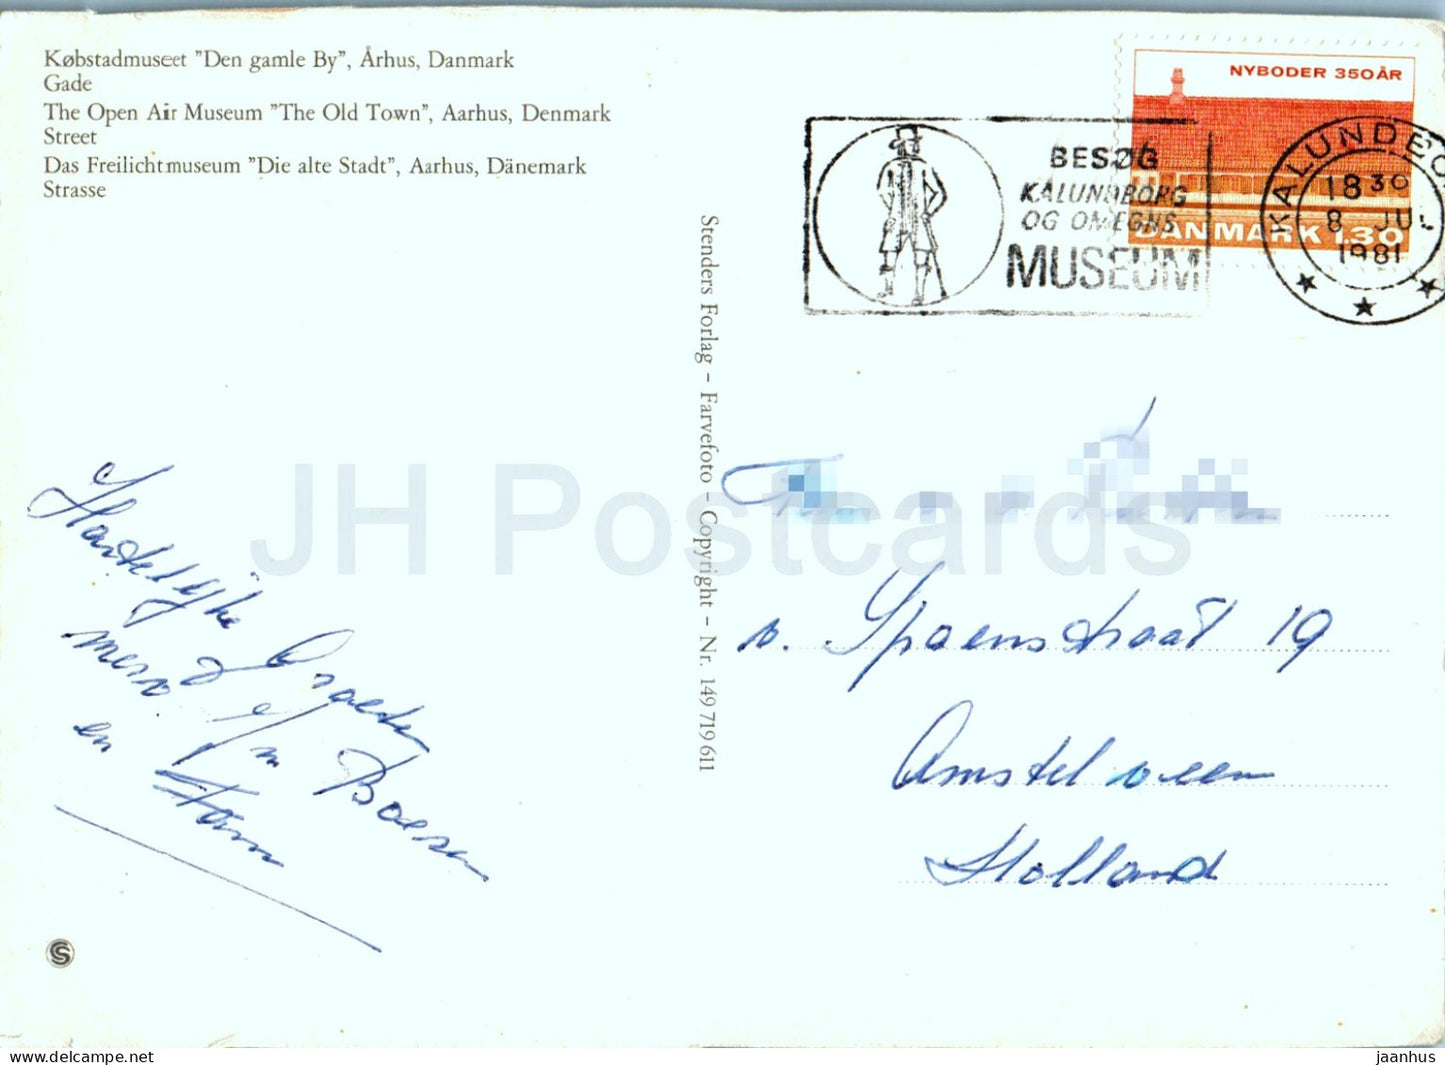 Købstadmuseet "Den gamle By", Århus, Danmark
Gade
The Open Air Museum "The Old Town", Aarhus, Denmark
Street
Das Freilichtmuseum "Die alte Stadt", Aarhus, Dänemark
Strasse
NYBODER 350 ÅR
DANMARK 130
BESØG
KALUNDBORG
OG OMEGNS
MUSEUM
KALUNDBO
18 30
8 JU
1981
Stenders Forlag – Farvefoto – Copyright – Nr. 149 719 611
JH Postcards
v. Spaenstraat 19
Amstelveen
Holland
Hartelijke
Groeten
en
www.delcampe.net
jaanhus